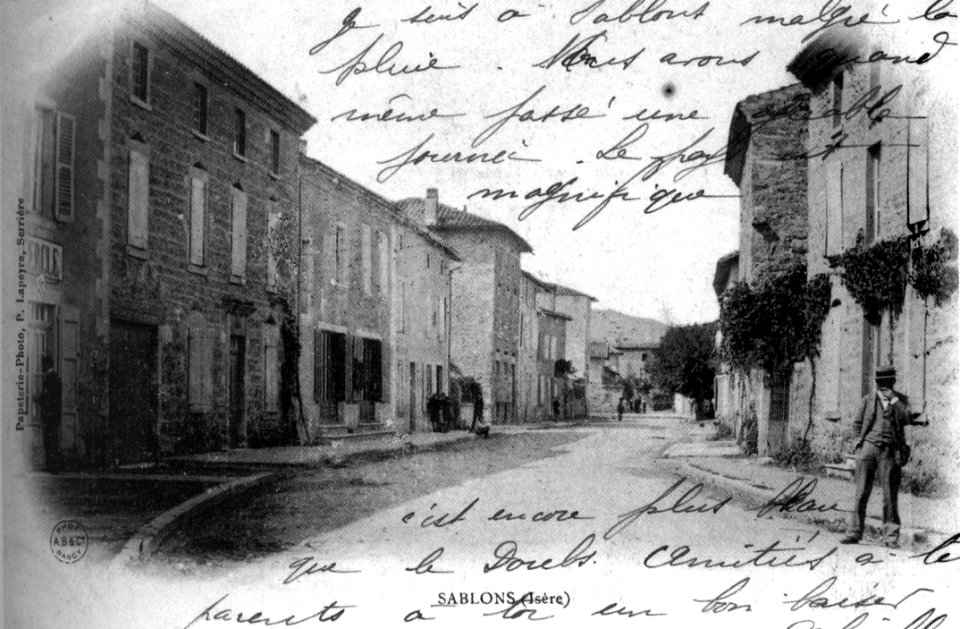 Je suis à Sablons malgré la
pluie. Nous avons quand
même passé une
journée. Le pays est
magnifique
c'est encore plus beau
que le Amitiés à te
parents à toi un bon baiser
SABLONS (Isère)
CERCLE
Papeterie-Photo, P. Lapeyre, Serrière
PHOT.
A.B & Cie
NANCY